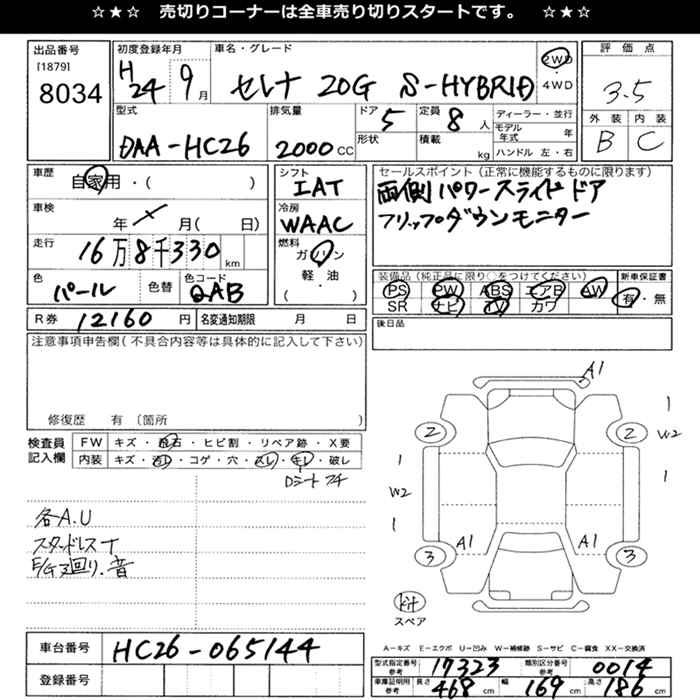 ☆★☆ 売切りコーナーは全車売り切りスタートです。 ☆★☆
出品番号
[1879]
8034
初度登録年月
H24 9月
車名・グレード
セレナ 20G S-HYBRID
2WD
4WD
評価点
3.5
外装 内装
B C
型式
DAA-HC26
排気量
2000 CC
ドア 5
形状
定員 8人
積載 kg
ディーラー・並行
モデル年式 年
ハンドル 左・右
車歴
自家用・( )
車検
年 月( 日)
走行
16万8千330 km
色
パール
色替
色コード
QAB
シフト
IAT
冷房
WAAC
燃料
ガソリン
軽・油
( )
セールスポイント(正常に機能するものに限ります)
両側パワースライドドア
フリップダウンモニター
装備品(純正品に限り○をつけてください)
PS PW ABS エアB AW
SR ナビ カワ
新車保証書
有・無
R券 12160 円 名変通知期限 月 日
後日品
注意事項申告欄(不具合内容等は具体的に記入して下さい)
修復歴 有 〔箇所 )
検査員記入欄
FW キズ・飛石・ヒビ割・リペア跡・X要
内装 キズ・汚レ・コゲ・穴・スレ・キレ・破レ
Dシート フチ
各A.U
スタッドレス
E/G 3回り.音
A1
2 2
1
W2
1
1
W2
1
A1 A1
3 3
スペア
A-キズ E-エクボ U-凹み W-補修跡 S-サビ C-腐食 XX-交換済
車台番号 HC26-065144
登録番号
型式指定番号 参考 17323 類別区分番号 参考 0014
車庫証明用 参考 長さ 468 cm 幅 169 cm 高さ 186 cm